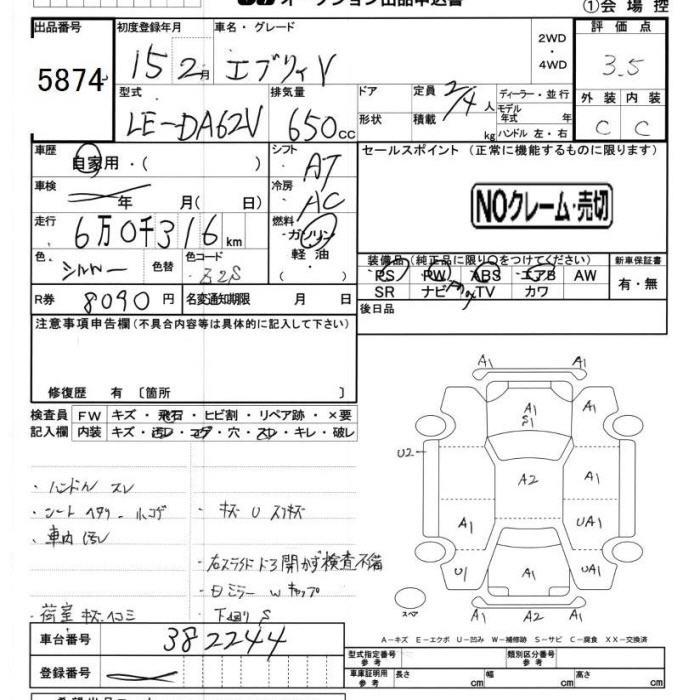 オークション出品申込書
①会場控
出品番号
5874
初度登録年月
15 2月
車名・グレード
エブリィV
2WD
・
4WD
評価点
3.5
外装 内装
C C
型式
LE-DA62V
排気量
650cc
ドア
形状
定員 2/4人
積載 kg
ディーラー・並行
モデル
年式 年
ハンドル 左・右
車歴 自家用・( )
車検 年 月( 日)
走行 6万0千316km
色. シルバー
色替
色コード Z2S
シフト AT
冷房 AC
燃料
ガソリン
軽油
・( )
R券 8090円
名変通知期限 月 日
セールスポイント (正常に機能するものに限ります)
NOクレーム・売切
装備品 (純正品に限り○をつけてください)
新車保証書
有・無
PS PW ABS エアB AW
SR ナビ TV カワ
後日品
注意事項申告欄(不具合内容等は具体的に記入して下さい)
修復歴 有〔箇所 〕
検査員 FW キズ・飛石・ヒビ割・リペア跡・×要
記入欄 内装 キズ・汚レ・コゲ・穴・スレ・キレ・破レ
・ハンドル スレ
・シート ヘタリ-ルコゲ
・車内 汚レ
・荷室 キズ・ヘコミ
・キズ U スリキズ
・右スライドドア開かず検査不備
・下回り S
A1 A1
A1
S1
A1
U2
A2
A1
A1
UA1
U1
A1
UA1
A1 A2 A1
スペア
A-キズ E-エクボ U-凹み W-補修跡 S-サビ C-腐食 XX-交換済
車台番号 382244
登録番号
型式指定番号
参考
類別区分番号
参考
車庫証明用
参考
長さ cm 幅 cm 高さ cm